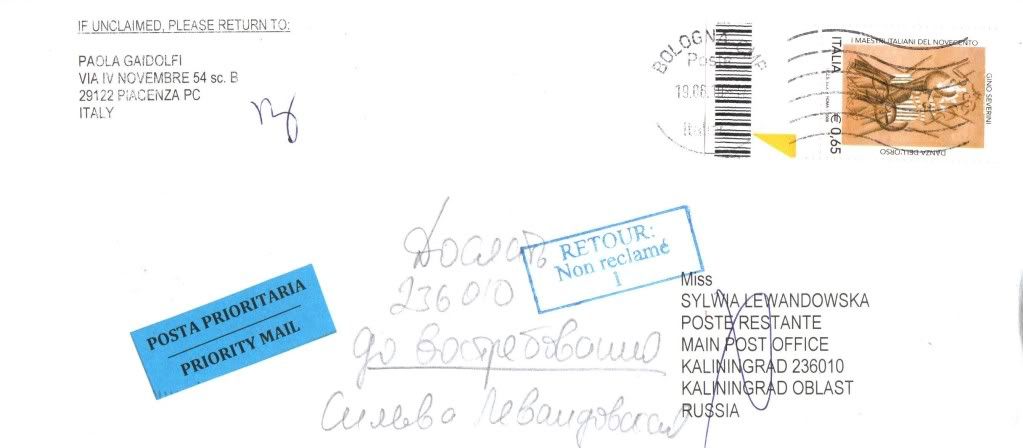 IF UNCLAIMED, PLEASE RETURN TO:
PAOLA GAIDOLFI
VIA IV NOVEMBRE 54 sc. B
29122 PIACENZA PC
ITALY
BOLOGNA CMP
Poste
19.08.
I MAESTRI ITALIANI DEL NOVECENTO
ITALIA
€ 0,65
GINO SEVERINI
DANZA DELL'ORSO
Дослать
236010
до востребования
Сильва Левандовская
RETOUR:
Non reclamé
1
POSTA PRIORITARIA
PRIORITY MAIL
Miss
SYLWIA LEWANDOWSKA
POSTE RESTANTE
MAIN POST OFFICE
KALININGRAD 236010
KALININGRAD OBLAST
RUSSIA